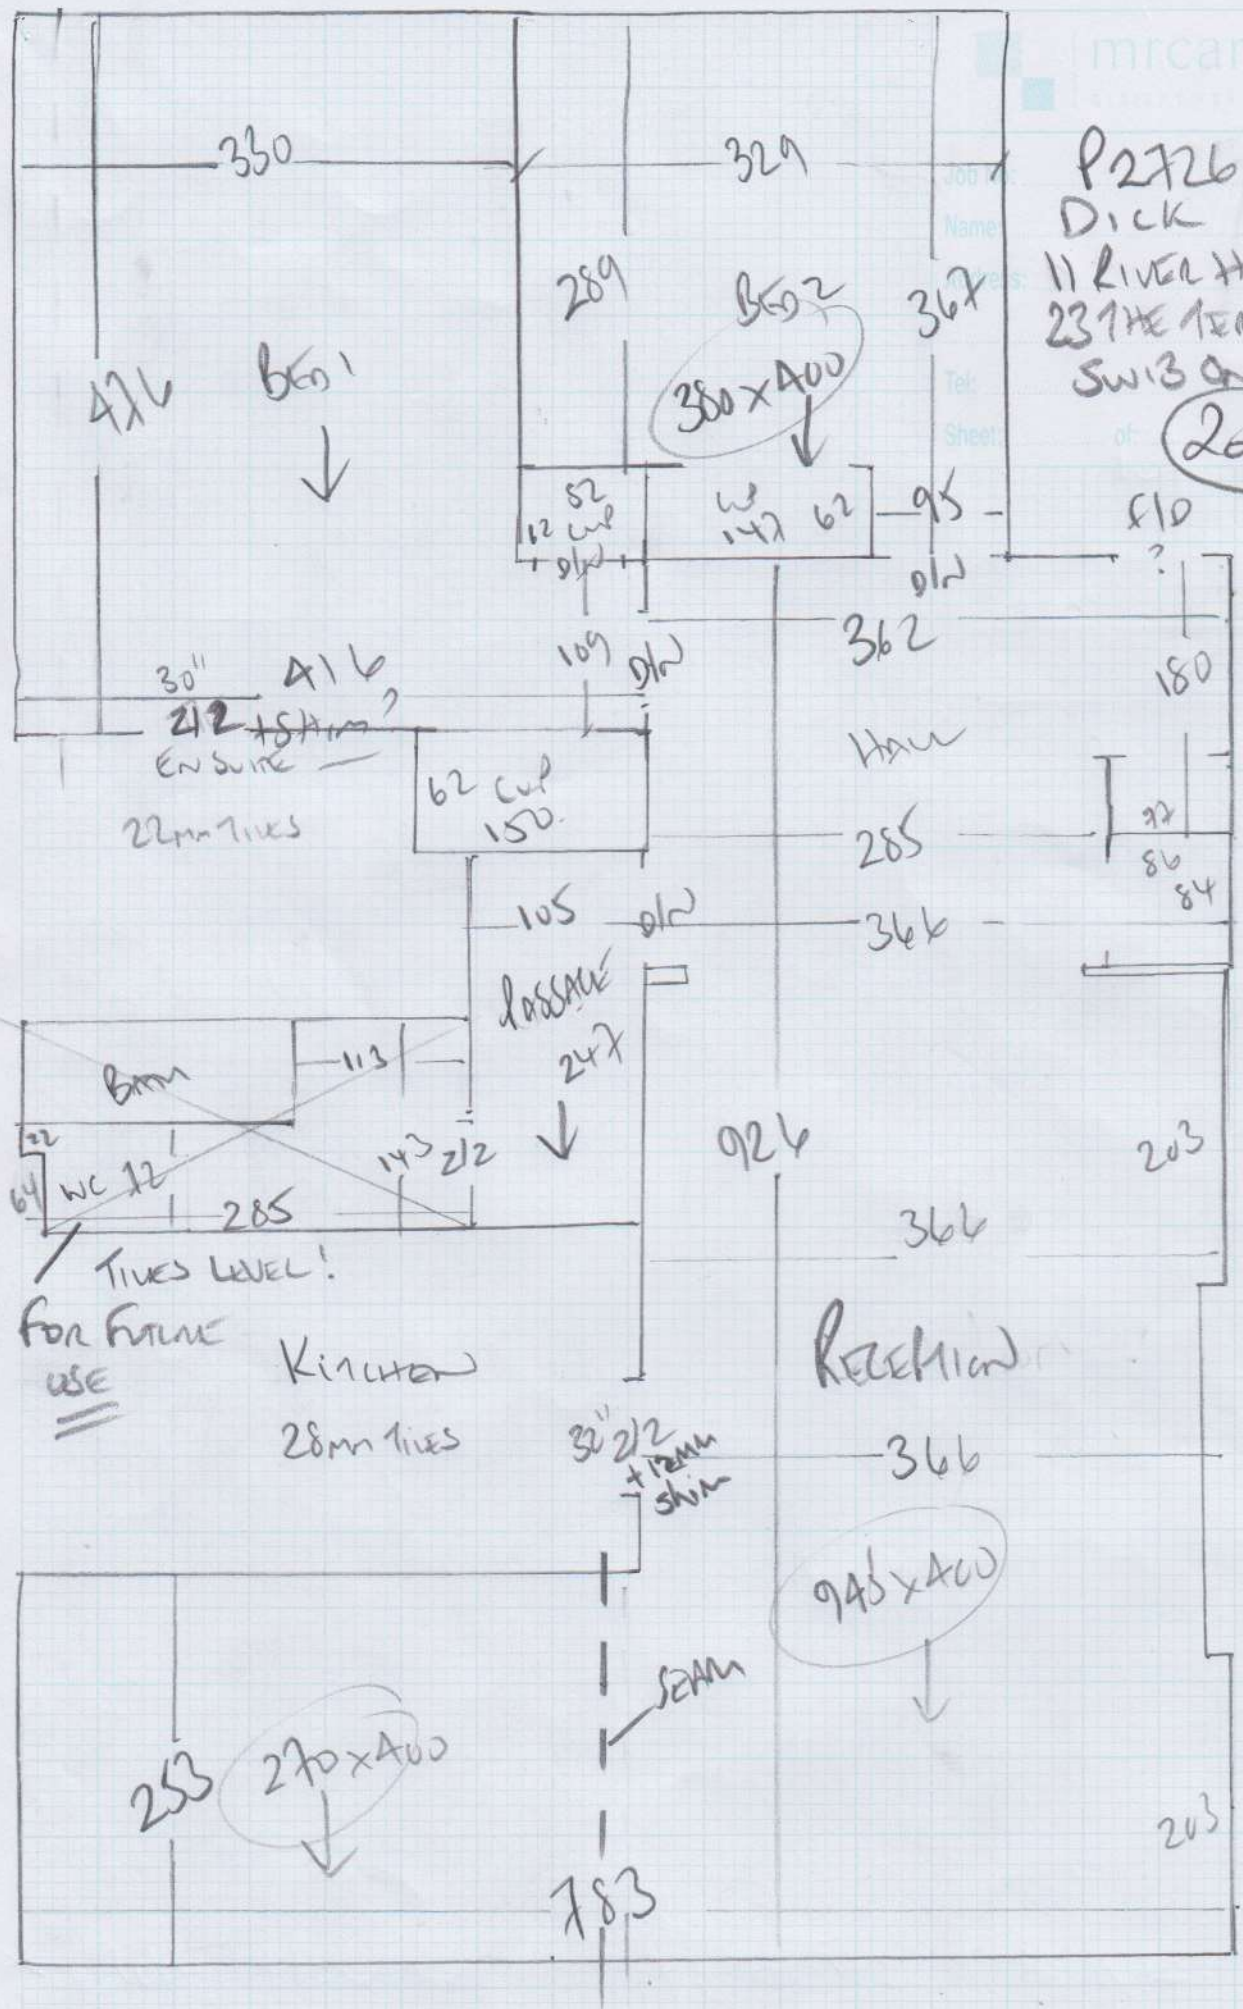 mrcar
Job No: P2726
Name: DICK
Address: 11 RIVER H
23 THE TER
Tel: SW13
Sheet: of:
330
329
289
BED 2
367
380 x 400
BED 1
52
62
147
95
F/D
?
D/N
D/N
362
109
D/N
180
30"
416
212 + SHIM?
ENSUITE
22mm TILES
HALL
62 CUP
150
285
86
84
105
D/N
366
PASSAGE
247
BATH
113
22
143
2/2
64
WC 72
285
924
203
366
TILES LEVEL!
FOR FUTURE
USE
KITCHEN
28mm TILES
RECEPTION
32" 2/2
+ 12mm
SHIM
366
945 x 400
SEAM
253
270 x 400
203
783